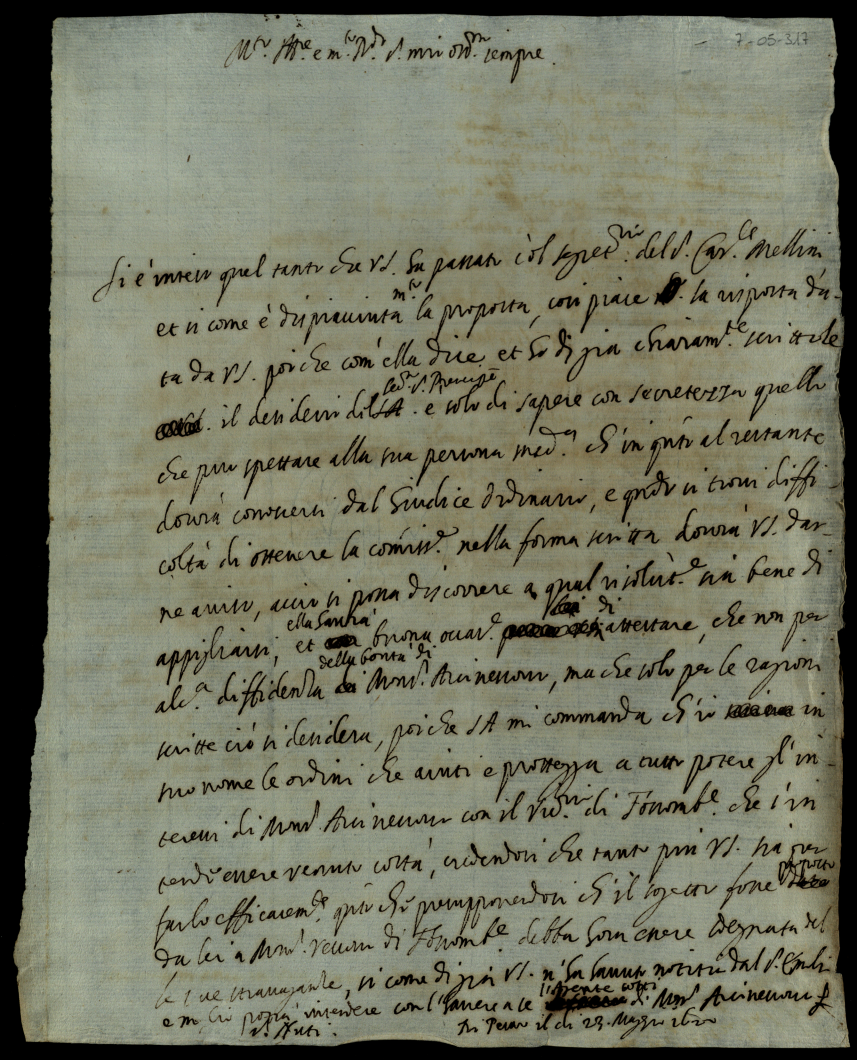 7-05-317
M.to Ill.re e m.to R.do S. mio oss.mo sempre
Si é inteso quel tanto che VS. ha passato col segret.rio del S. Car.le Mellini
et si come è dispiaciuta m.to la proposta, così piace la risposta da-
ta da VS. poiche com'ella dice, et ho di già chiaram.te scrittole
il desiderio del S. Prencipe SA. e solo di sapere con secretezza quello
che può spettare alla sua persona med.a ch'in q.nto al restante
dovrà conoscersi dal Giudice Ordinario, e q.ndo si trovi diffi-
coltà di ottenere la com̃iss.e nella forma scritta dovrà VS. dar-
ne aviso, acciò si possa discorrere a qual risolut.e sia bene di
appigliarsi, et ella havrà buona occas.e di attestare, che non per
alc.a diffidenza della bontà di Mons.r Arcivescovo, ma che solo per le ragioni
scritte ciò si desidera, poiche SA mi commanda ch'io in
suo nome le ordini che aiuti e protegga a tutto potere gl'in-
teressi di Mons.r Arcivescovo con il di Fossomb.e che s'in
tende essere venuto costà, credendosi che tanto più VS. sia per
farlo efficacem.te q.nto che presupponendosi ch'il sogetto fosse proposto
da lei a Mons.r Vescovo di Fossomb.e debba hora essere sdegnata del
le sue stravaganze, si come di già VS. n'ha havuto notitia dal S.
e meglio potrà intendere con l'havere a se l'Agente costì di Mons.r Arcivescovo
Di Pesaro il di 23. Maggio